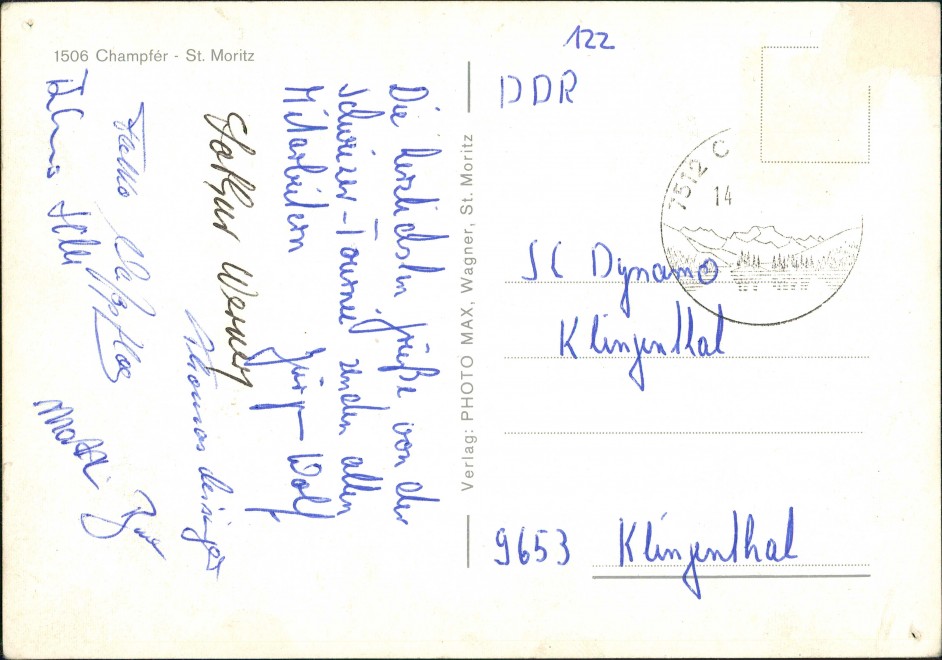 1506 Champfér - St. Moritz
Die herzlichsten Grüße von der
Schweizer-Tournee senden allen
Mitarbeitern
Jürg-Wolf
Lothar Werner
Thomas
Falko
Matthi
Verlag: PHOTO MAX, Wagner, St. Moritz
122
DDR
7512 C
14
SC Dynamo
Klingenthal
9653 Klingenthal